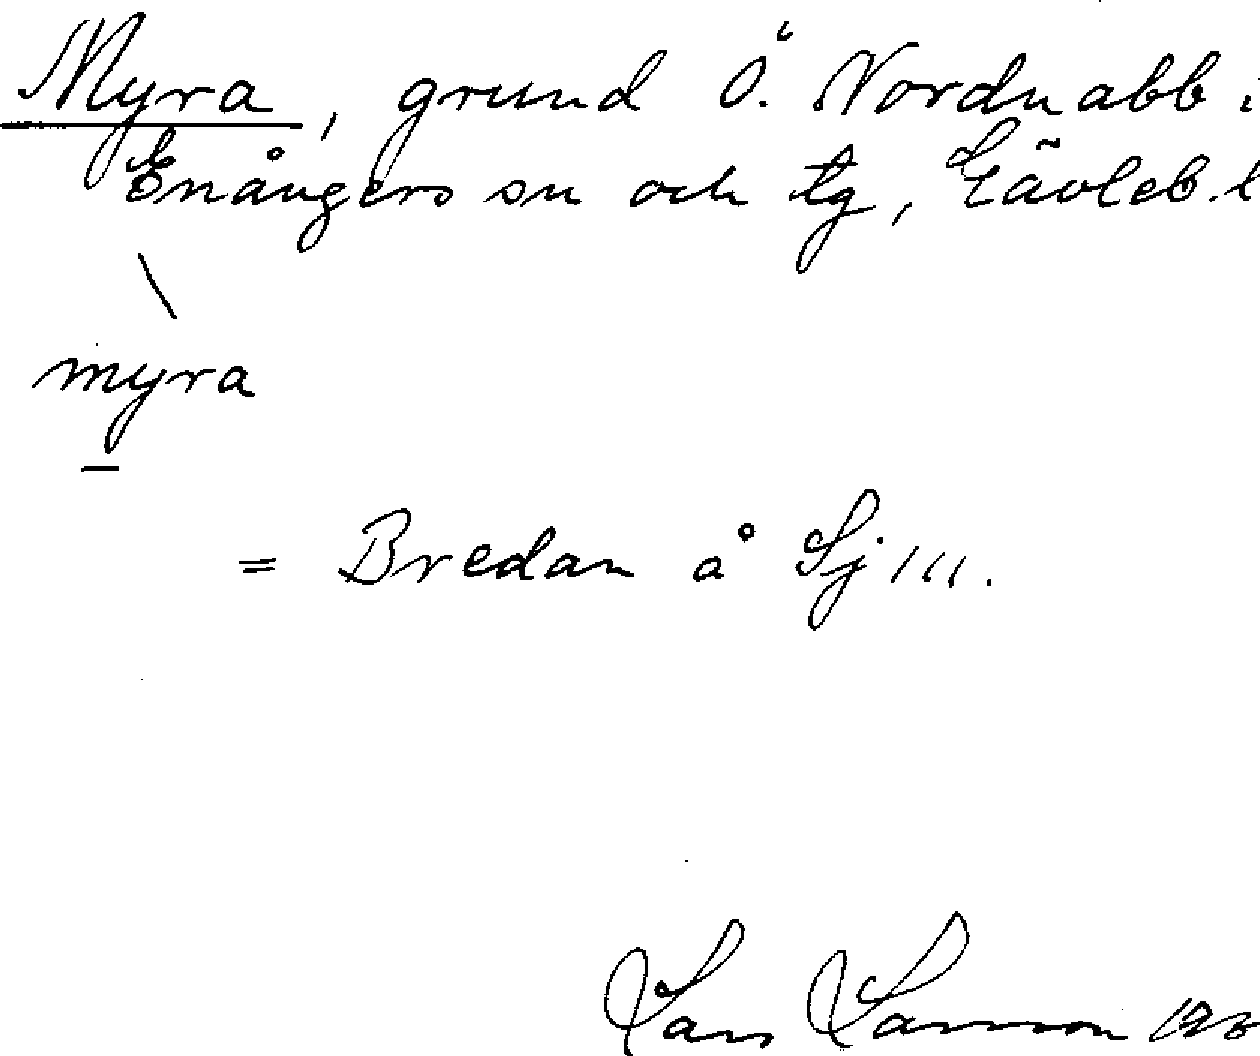 Myra, grund Ö. Nordnabb i
Enångers sn och tg, Gävleb. l
\
myra
= Bredan å Sj 111.
Lars Larsson 196